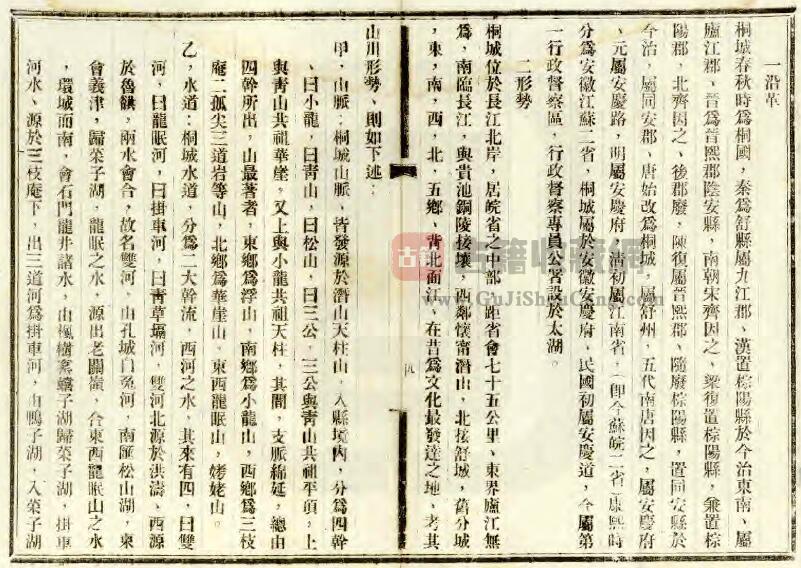 一沿革
桐城春秋時爲桐國，秦爲舒縣屬九江郡、漢置樅陽縣於今治東南、屬
廬江郡、晉爲晉熙郡陰安縣，南朝宋齊因之、梁復置樅陽縣，兼置樅
陽郡，北齊因之、後郡廢，陳復屬晉熙郡、隨廢樅陽縣，置同安縣於
今治，屬同安郡、唐始改爲桐城，屬舒州，五代南唐因之，屬安慶府
、元屬安慶路，明屬安慶府，清初屬江南省，（即今蘇皖二省）康熙時
分爲安徽江蘇二省，桐城屬於安徽安慶府，民國初屬安慶道，今屬第
一行政督察區，行政督察專員公署設於太湖。
二形勢
桐城位於長江北岸，居皖省之中部，距省會七十五公里、東界廬江無
爲，南臨長江，與貴池銅陵接壤，西鄰懷甯潛山，北接舒城，舊分城
，東，南，西，北，五鄉、背北面江，在昔爲文化最發達之地、考其
九
山川形勢、則如下述：
甲，山脈：桐城山脈、皆發源於潛山天柱山，入縣境內，分爲四幹
、曰小龍，曰青山，曰松山，曰三公，三公與青山共祖平頂，上
與青山共祖華崖，又上與小龍共祖天柱，其間，支脈綿延，總由
四幹所出，山最著者，東鄉爲浮山，南鄉爲小龍山，西鄉爲三枝
庵二孤尖三道岩等山，北鄉爲華崖山。東西龍眠山，姥姥山。
乙，水道：桐城水道，分爲二大幹流，西河之水，其來有四，曰雙
河，曰龍眠河，曰掛車河，曰青草塥河，雙河北源於洪濤、西源
於魯鎮，兩水會合，故名雙河，由孔城白兔河，南匯松山湖，東
會義津，歸菜子湖，龍眠之水，源出老關嶺，合東西龍眠山之水
，環城而南，會石門龍井諸水，由楓樹窩蟂子湖歸菜子湖，掛車
河水、源於三枝庵下，出三道河爲掛車河，由鴨子湖，入菜子湖
古籍收藏網
www.GuJiShuCang.com